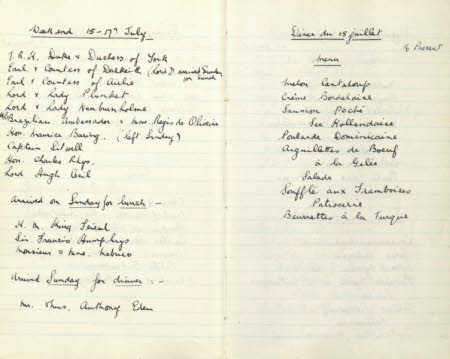 Week end 15–17th July
T.R.H. Duke & Duchess of York
Earl & Countess of Dalkeith (Lord D arrived Sunday for lunch
Earl & Countess of Airlie
Lord & Lady Plunket
Lord & Lady Nunburnholme
Brazilian Ambassador & Mme. Regis de Oliveira
Hon. Maurice Baring. (left Sunday)
Captain Sitwell
Hon. Charles Rhys.
Lord Hugh Cecil
Arrived on Sunday for lunch :-
H. M. King Feisal
Sir Francis Humphrys
Monsieur & Mme. Nabuco
Arrived Sunday for dinner :-
Mr. & Mrs. Anthony Eden
Diner du 15 juillet
Present
Menu
Melon Cantaloup
Crême Bordelaise
Saumon Poché
Sce Hollandaise
Poularde Dominicaine
Aiguillettes de Boeuf
à la Gelée
Salade
Soufflé aux Framboises
Patisserie
Beurrettes à la Turque